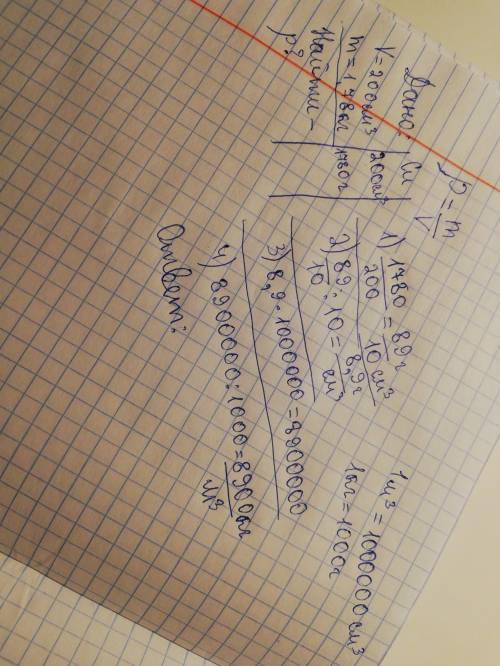 ρ = m/V
Дано:
V = 200 см³
m = 1,78 кг
Найти –
ρ?
Си
200 см³
1780 г
1) 1780/200 = 89 г/10 см³
2) 89/10 : 10 = 8,9 г/см³
3) 8,9 · 1000000 = 8900000
4) 8900000 : 1000 = 8900 кг/м³
Ответ:
1 м³ = 1000000 см³
1 кг = 1000 г